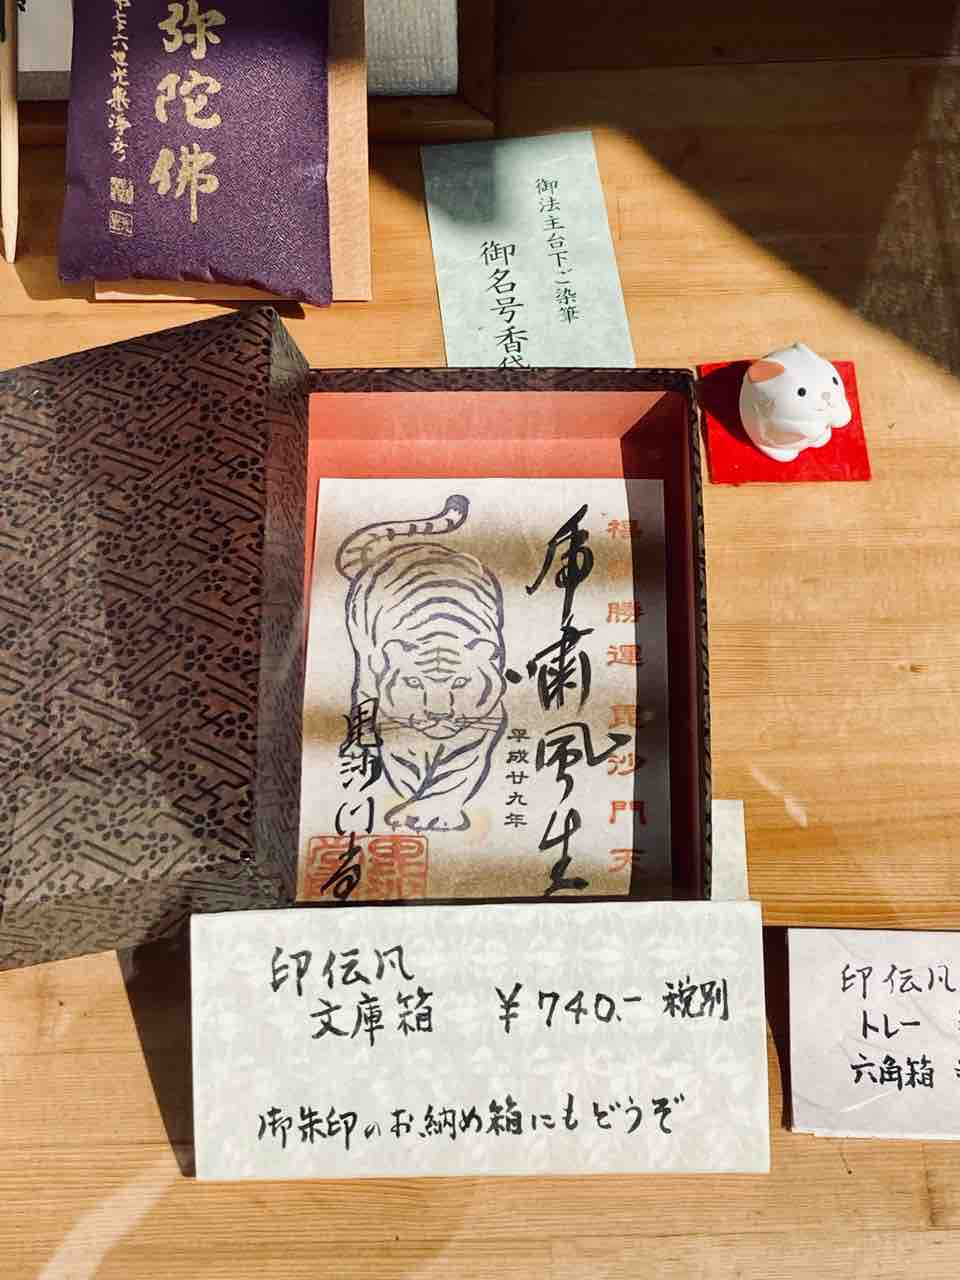 弥陀佛
御法主台下ご染筆
御名号香代
福 勝運毘沙門天
虎嘯風生
平成廿九年
毘沙門堂
印伝風
文庫箱 ¥740.- 税別
御朱印のお納め箱にもどうぞ
印伝風
トレー
六角箱